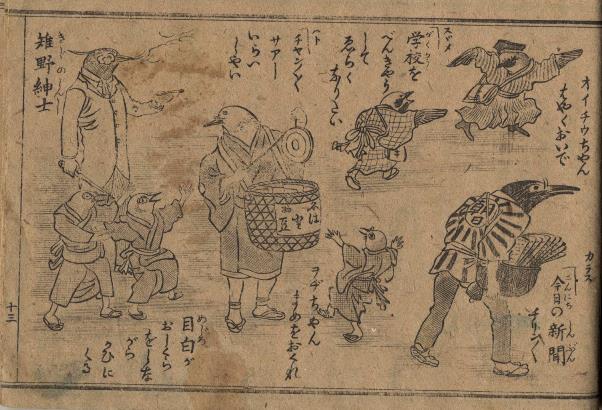 オイチウちやん
はやくおいで
スヾメ
学校を
がくかう
べんきやう
して
ゑらく
なりたい
ハト
チヤン〱
サアー
いらい
しやい
雉野紳士
きじのしんし
カラス
今日の新聞
こんにち しんぶん
チリン〱
ヲヂちやん
まめをおくれ
目白が
めじろ
おしくら
をしな
がら
かひに
くる
十三